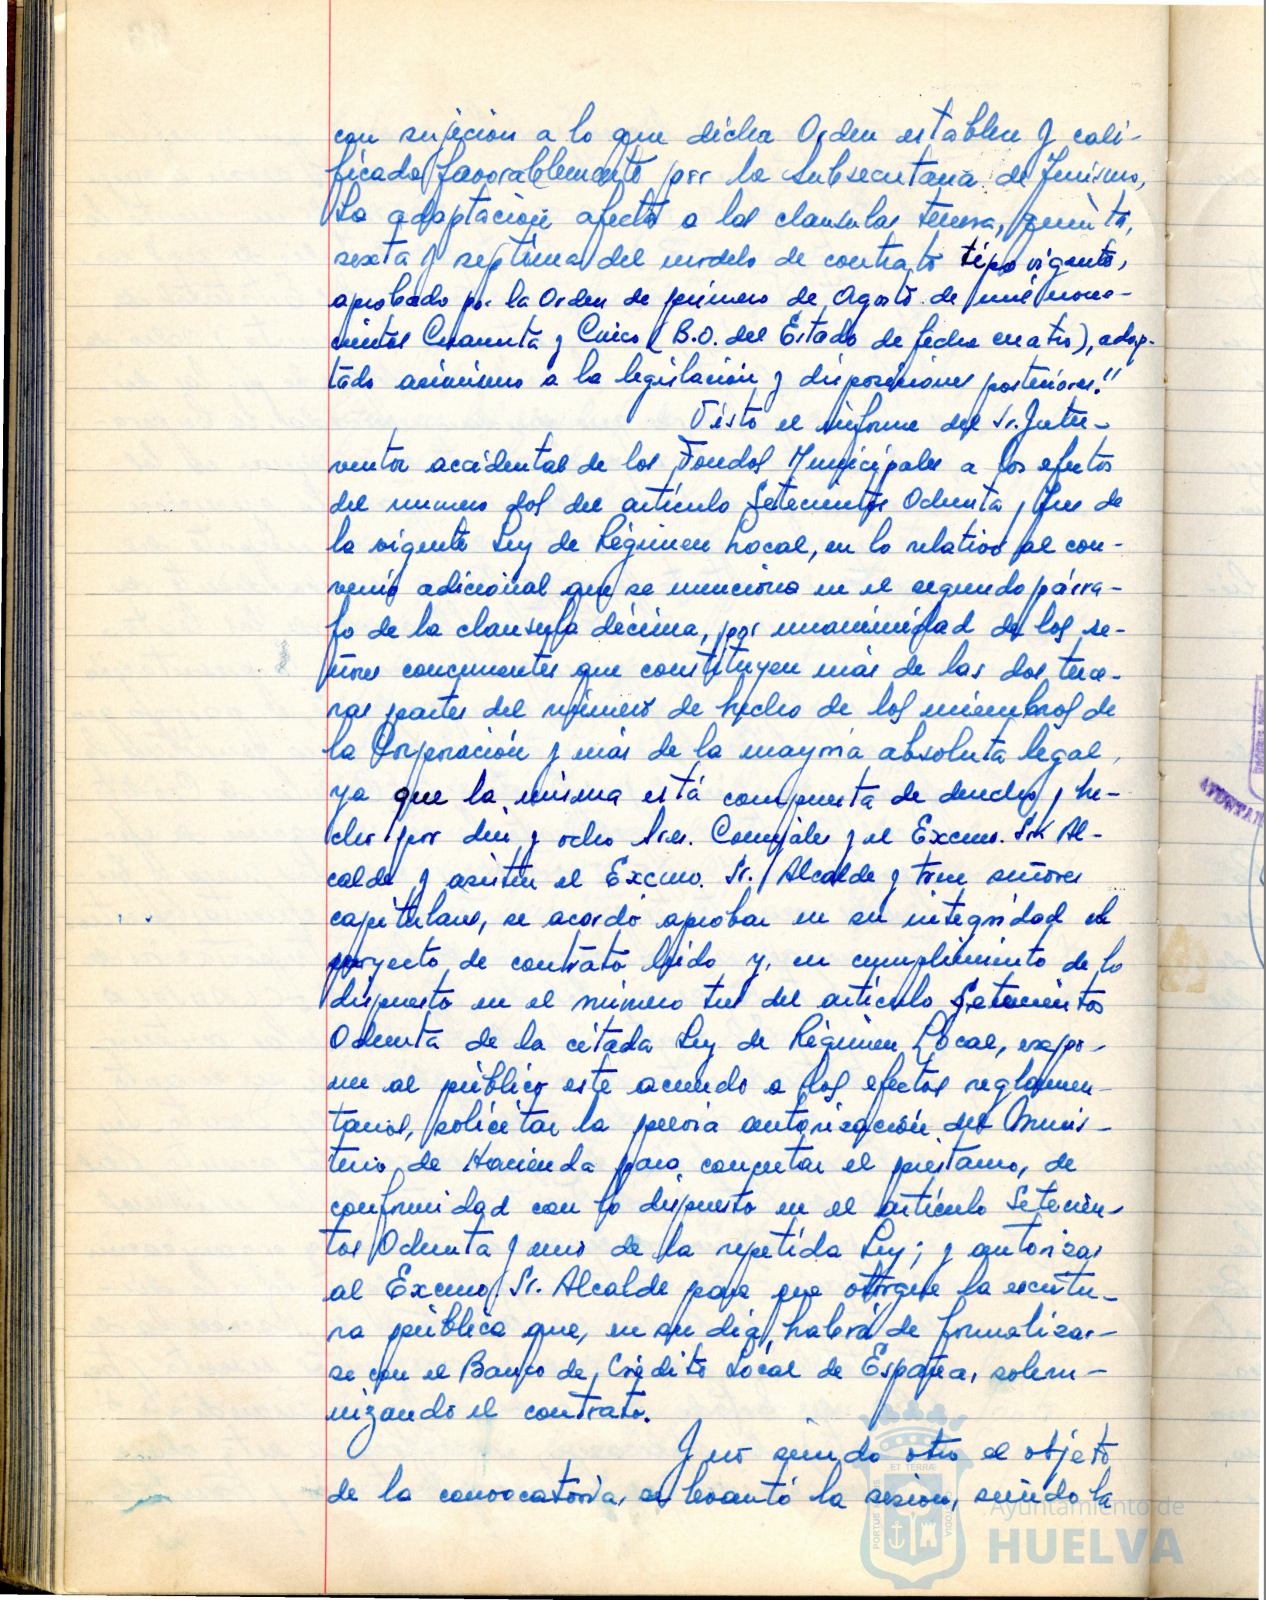 con sujeción a lo que dicha Orden establece y cali-
ficada favorablemente por la Subsecretaria de Turismo,
La adaptación afecta a las clausulas tercera, quinta,
sexta y septima del modelo de contrato tipo vigente,
aprobado por la Orden de primero de Agosto de mil nove-
cientos Cuarenta y Cinco (B.O. del Estado de fecha cuatro), adap-
tado asimismo a la legislación y disposiciones posteriores."
Visto el informe del Sr. Inter-
ventor accidental de los Fondos Municipales a los efectos
del numero dos del artículo Setecientos Ochenta y tres de
la vigente Ley de Régimen Local, en lo relativo al con-
venio adicional que se menciona en el segundo párra-
fo de la clausula décima, por unanimidad de los se-
ñores concurrentes que constituyen más de las dos terce-
ras partes del número de hecho de los miembros de
la Corporación y más de la mayoría absoluta legal,
ya que la misma está compuesta de derecho y he-
cho por diez y ocho Sres. Concejales y el Excmo. Sr. Al-
calde y asisten el Excmo. Sr. Alcalde y trece señores
capitulares, se acordó aprobar en su integridad el
proyecto de contrato leído y, en cumplimiento de lo
dispuesto en el número tres del artículo Setecientos
Ochenta de la citada Ley de Régimen Local, expo-
ner al público este acuerdo a los efectos reglamen-
tarios, solicitar la previa autorización del Minis-
terio de Hacienda para concertar el préstamo, de
conformidad con lo dispuesto en el artículo Setecien-
tos Ochenta y uno de la repetida Ley; y autorizar
al Excmo. Sr. Alcalde para que otorgue la escritu-
ra pública que, en su día, habrá de formalizar-
se con el Banco de Crédito Local de España, solem-
nizando el contrato.
Y no siendo otro el objeto
de la convocatoria, se levantó la sesión, siendo la
Ayuntamiento de
HUELVA